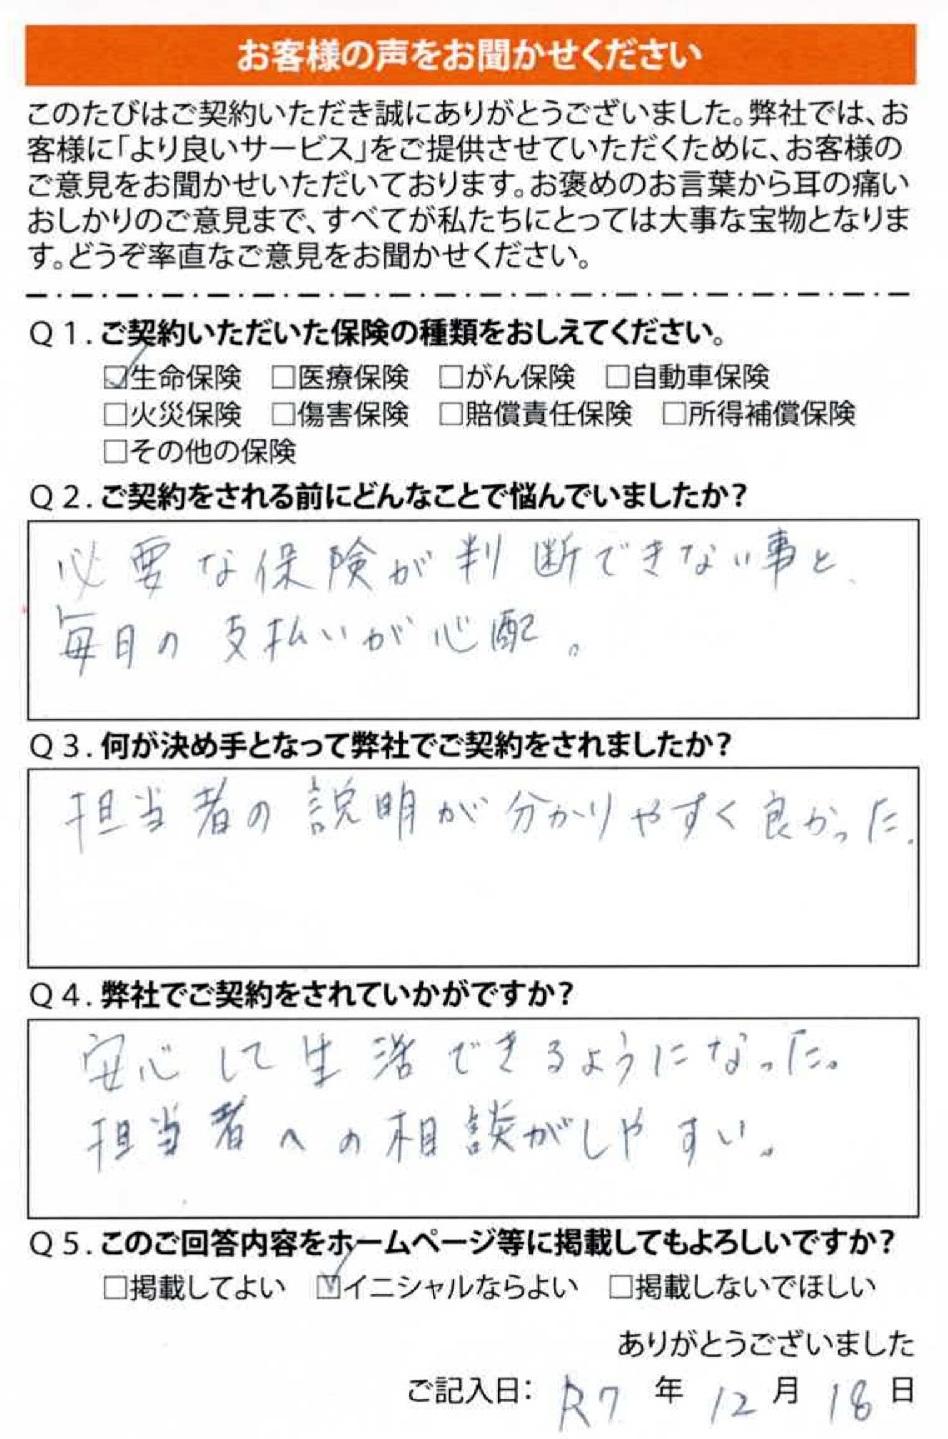 お客様の声をお聞かせください
このたびはご契約いただき誠にありがとうございました。弊社では、お
客様に「より良いサービス」をご提供させていただくために、お客様の
ご意見をお聞かせいただいております。お褒めのお言葉から耳の痛い
おしかりのご意見まで、すべてが私たちにとっては大事な宝物となりま
す。どうぞ率直なご意見をお聞かせください。
Q1.ご契約いただいた保険の種類をおしえてください。
☑生命保険 □医療保険 □がん保険 □自動車保険
□火災保険 □傷害保険 □賠償責任保険 □所得補償保険
□その他の保険
Q2.ご契約をされる前にどんなことで悩んでいましたか?
必要な保険が判断できない事と、
毎日の支払いが心配。
Q3.何が決め手となって弊社でご契約をされましたか?
担当者の説明が分かりやすく良かった。
Q4.弊社でご契約をされていかがですか?
安心して生活できるようになった。
担当者への相談がしやすい。
Q5.このご回答内容をホームページ等に掲載してもよろしいですか?
□掲載してよい ☑イニシャルならよい □掲載しないでほしい
ありがとうございました
ご記入日: R7 年 12 月 18 日